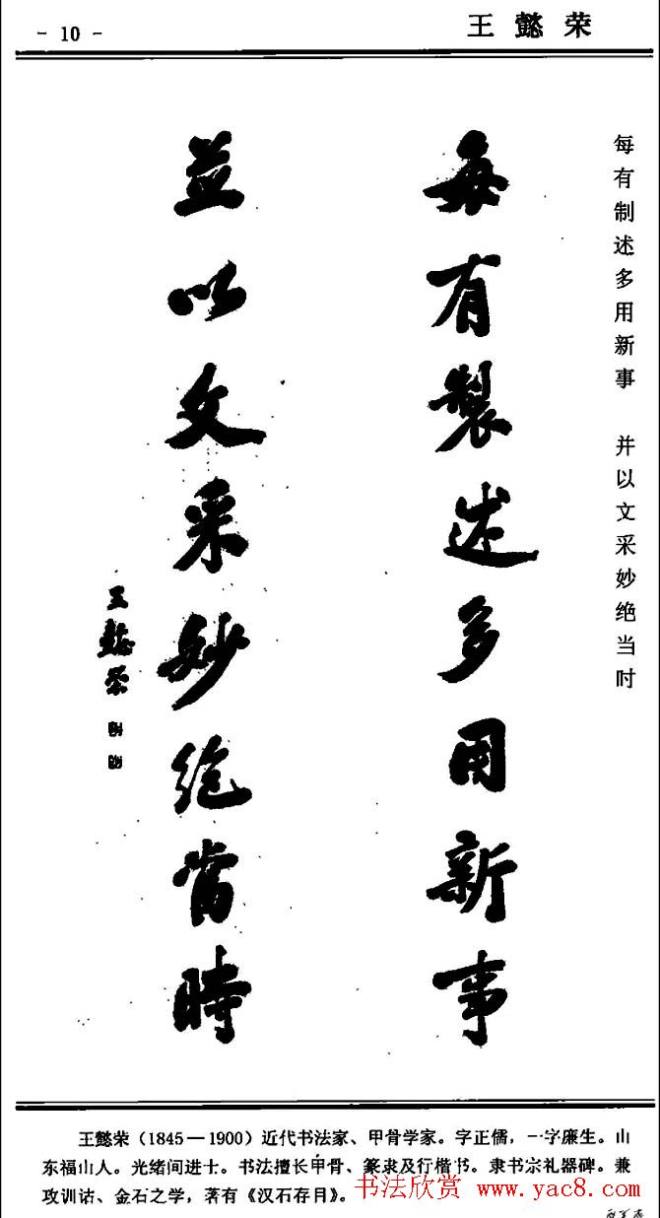 - 10 -
王懿荣
每有制述多用新事 并以文采妙绝当时
每有製述多用新事
並以文采妙绝當時
王懿荣
王懿荣（1845—1900）近代书法家、甲骨学家。字正儒，一字廉生。山
东福山人。光绪间进士。书法擅长甲骨、篆隶及行楷书。隶书宗礼器碑。兼
攻训诂、金石之学，著有《汉石存目》。
书法欣赏 www.yac8.com